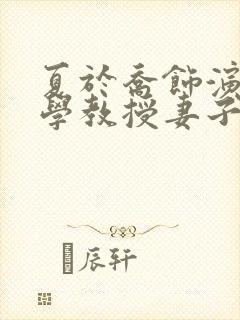 夏於喬飾演
學教授妻子
辰轩